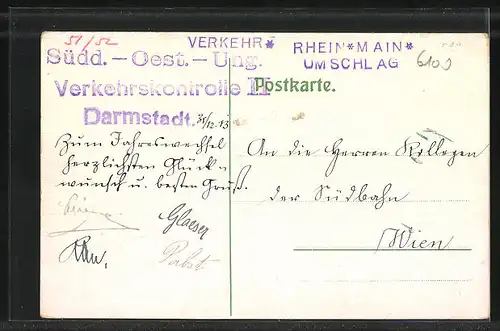 51/52
VERKEHR*
RHEIN*MAIN*
UMSCHLAG
6100
Südd.-Oest.-Ung.
Verkehrskontrolle II
Darmstadt.
31/12.13
Postkarte.
Zum Jahreswechsel
herzlichsten Glück-
wunsch u. besten Gruß.
Glaeser
Pabst
An die Herren Kollegen
der Südbahn
Wien